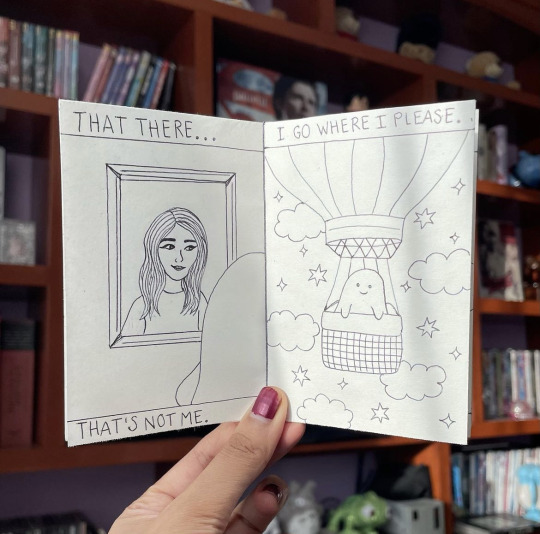 THAT THERE...
THAT'S NOT ME.
I GO WHERE I PLEASE.